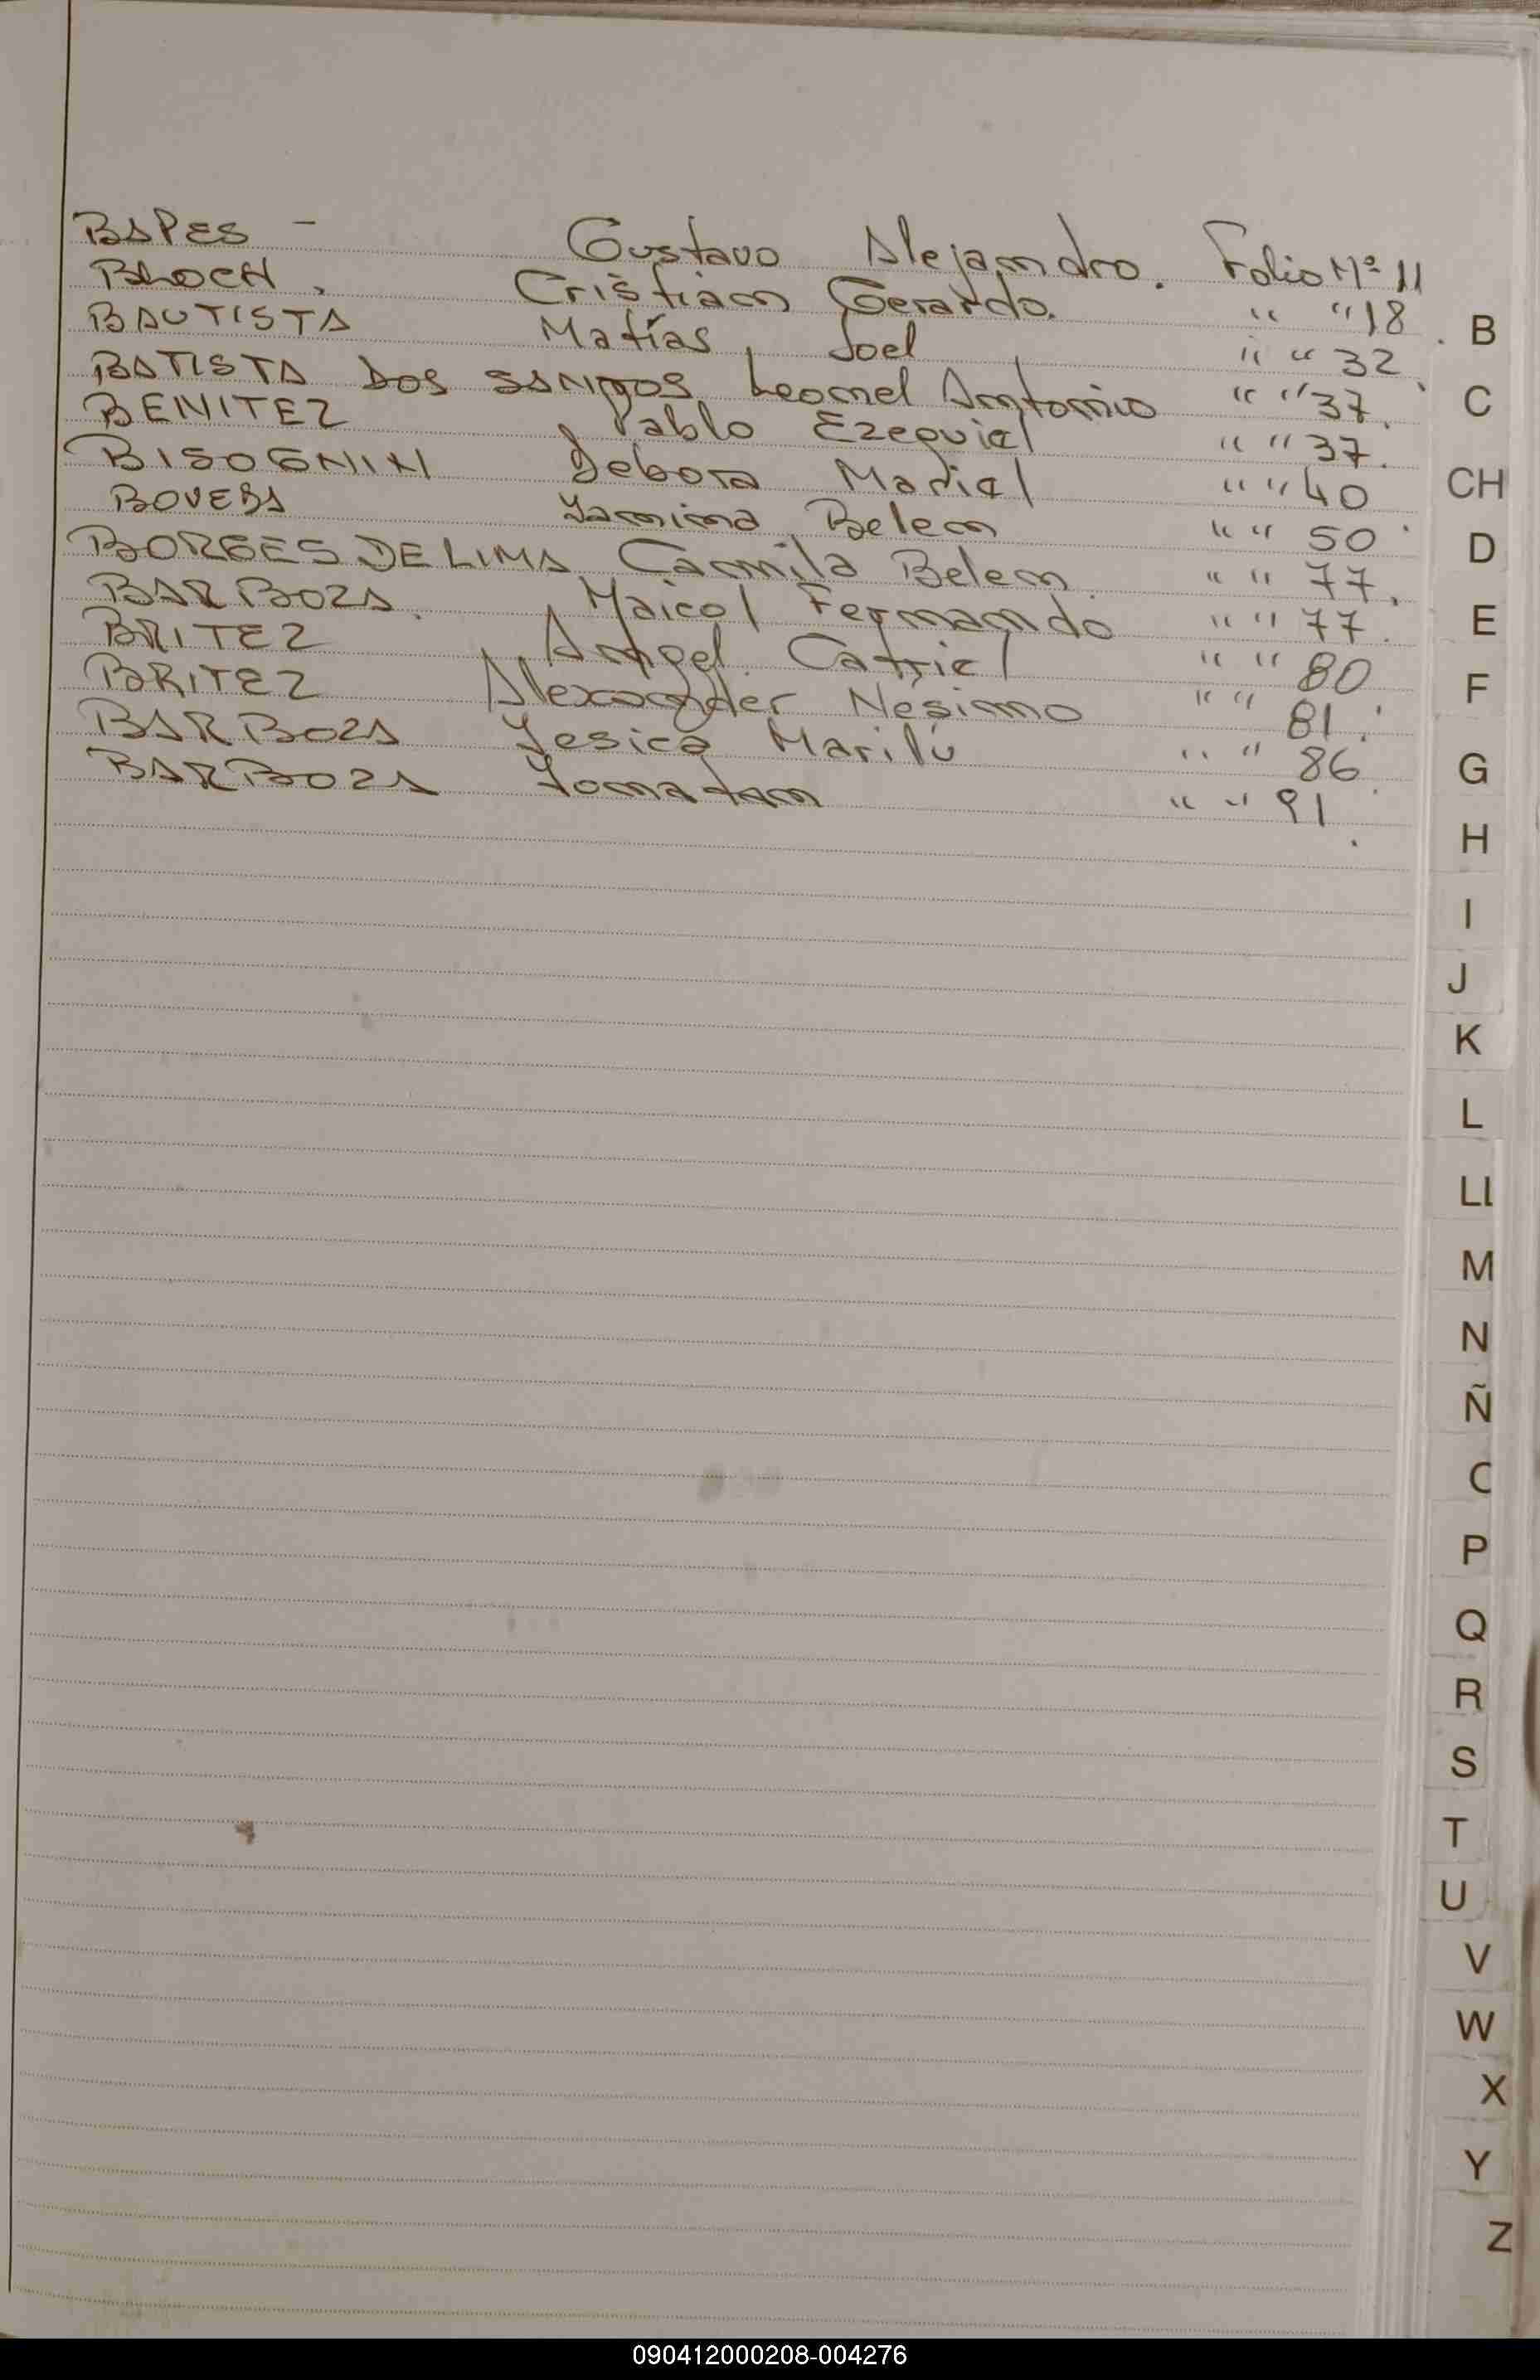 BAPES - Gustavo Alejandro. Folio Nº 11
BLOCH, Cristian Gerardo. " " 18
BAUTISTA Matías Joel " " 32
BATISTA DOS SANTOS Leonel Antonio " " 37
BENITEZ Pablo Ezequiel " " 37.
BISOGNIN Debora Mariel " " 40
BOVEDA Yamina Belen " " 50
BORGES DE LIMA Camila Belen " " 77.
BARBOZA Maicol Fernando " " 77.
BRITEZ Angel Catriel " " 80
BRITEZ Alexander Nesimo " " 81.
BARBOZA Yesica Marilú " " 86
BARBOZA Yonatan " " 91.
B
C
CH
D
E
F
G
H
I
J
K
L
LL
M
N
Ñ
O
P
Q
R
S
T
U
V
W
X
Y
Z
090412000208-004276